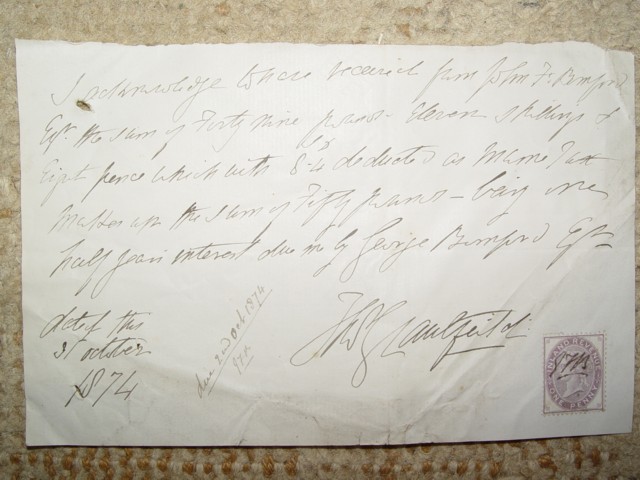 I acknowledge to have received from John F. Bumford
Esqr. the sum of Forty nine pounds Eleven shillings &
Eight pence which with 8-4 deducted as Income Tax
makes up the sum of Fifty pounds - being one
half years interest due me by George Bumford Esqr
dated this
31 October
1874
due 2nd Oct 1874
INLAND REVENUE
ONE PENNY